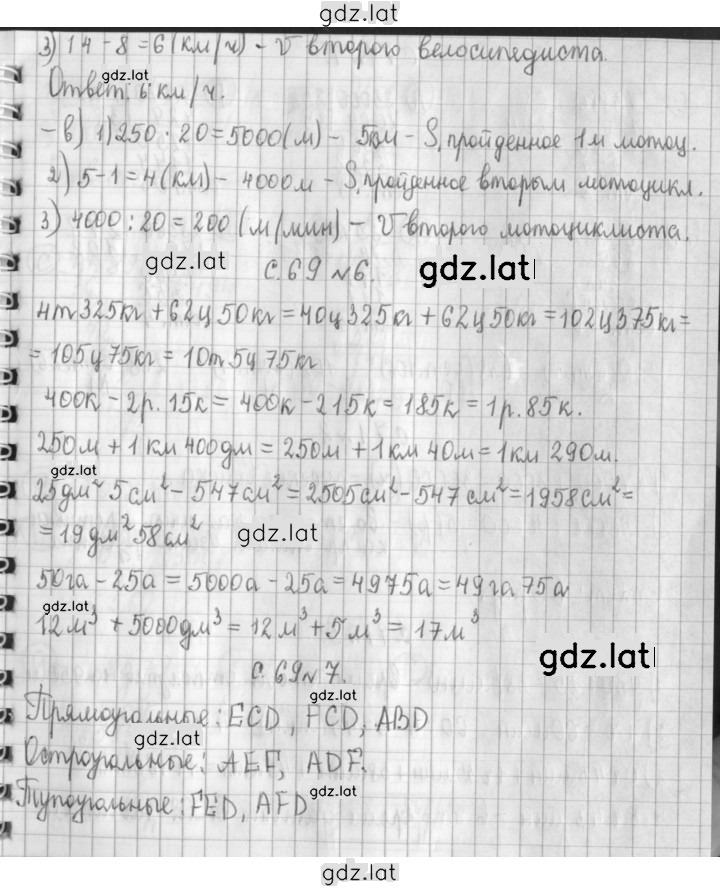 gdz.lat
3) 14 - 8 = 6 (км/ч) - V второго велосипедиста.
gdz.lat
Ответ: 6 км/ч.
- в) 1) 250 · 20 = 5000 (м) - 5км - S, пройденное 1м мотоц.
2) 5 - 1 = 4 (км) - 4000м - S, пройденное вторым мотоцикл.
3) 4000 : 20 = 200 (м/мин) - V второго мотоциклиста.
gdz.lat
с. 69 №6.
gdz.lat
4т 325кг + 62ц 50кг = 40ц 325кг + 62ц 50кг = 102ц 375кг =
= 105ц 75кг = 10т 5ц 75кг
400к - 2р. 15к = 400к - 215к = 185к = 1р. 85к.
250м + 1 км 400дм = 250м + 1км 40м = 1км 290м.
gdz.lat
25дм² 5см² - 547см² = 2505см² - 547см² = 1958см² =
= 19дм² 58см²
gdz.lat
50га - 25а = 5000а - 25а = 4975а = 49га 75а
gdz.lat
12м³ + 5000дм³ = 12м³ + 5м³ = 17м³
gdz.lat
с. 69 №7.
gdz.lat
Прямоугальные: ECD, FCD, ABD
gdz.lat
Остроугальные: AEF, ADF.
gdz.lat
Тупоугальные: FED, AFD
gdz.lat